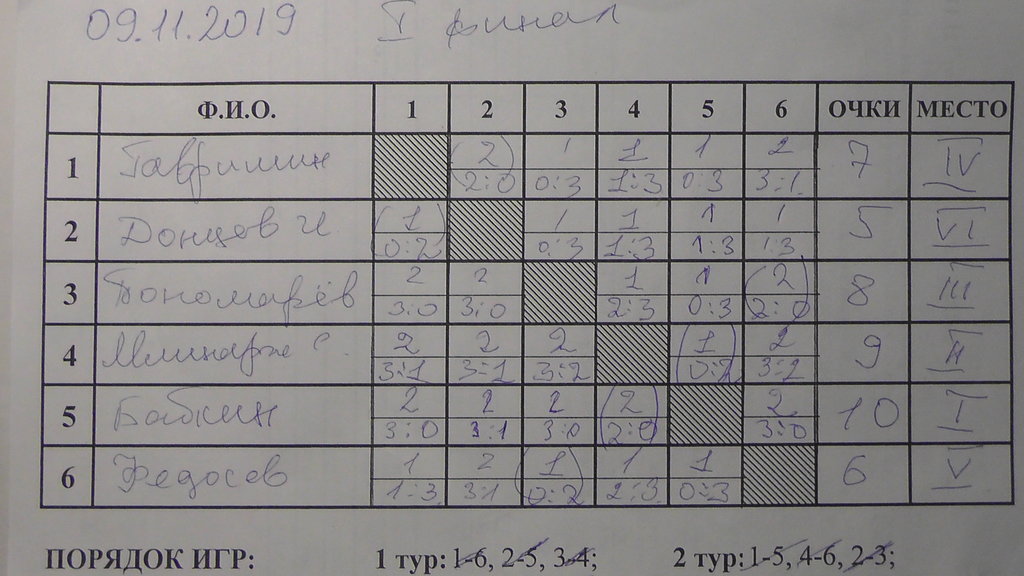 09.11.2019 I финал
Ф.И.О. 1 2 3 4 5 6 ОЧКИ МЕСТО
1 Гавришин (2) 1 1 1 2 7 IV
2:0 0:3 1:3 0:3 3:1
2 Донцов И. (1) 1 1 1 1 5 VI
0:2 0:3 1:3 1:3 1:3
3 Пономарёв 2 2 1 1 (2) 8 III
3:0 3:0 2:3 0:3 2:0
4 С. 2 2 2 (1) 2 9 II
3:1 3:1 3:2 0:2 3:2
5 Бабкин 2 2 2 (2) 2 10 I
3:0 3:1 3:0 2:0 3:0
6 Федосов 1 2 (1) 1 1 6 V
1:3 3:1 0:2 2:3 0:3
ПОРЯДОК ИГР: 1 тур: 1-6, 2-5, 3-4; 2 тур: 1-5, 4-6, 2-3;